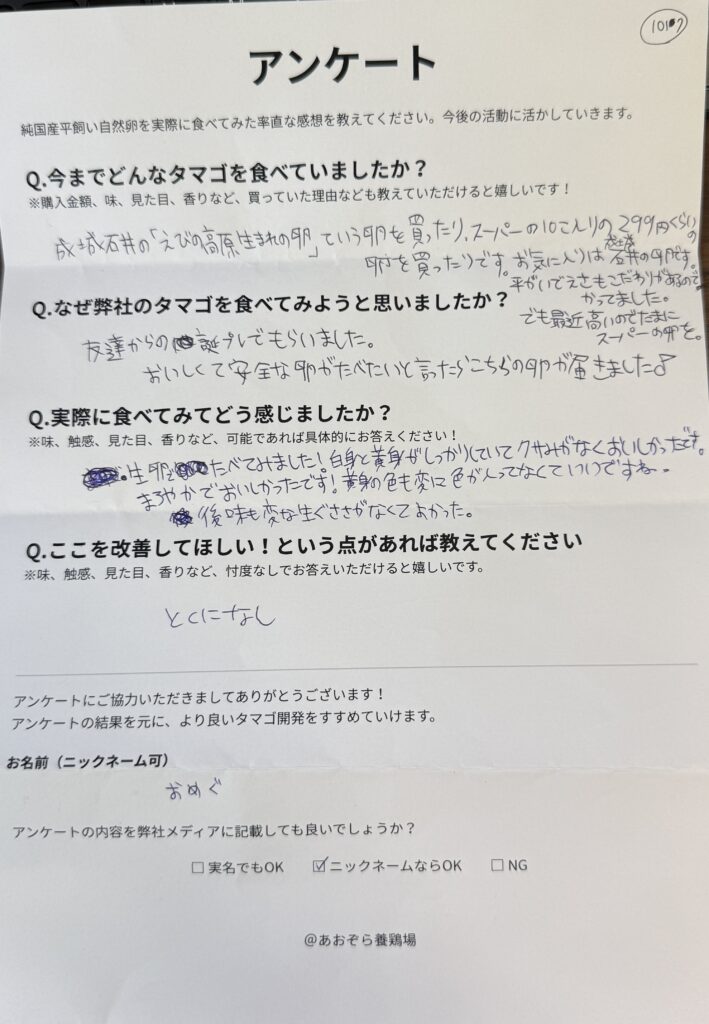 アンケート
純国産平飼い自然卵を実際に食べてみた率直な感想を教えてください。今後の活動に活かしていきます。
Q.今までどんなタマゴを食べていましたか？
※購入金額、味、見た目、香りなど、買っていた理由なども教えていただけると嬉しいです！
成城石井の「えびの高原生まれの卵」ていう卵を買ったり、スーパーの10こ入りの299円くらいの
卵を買ったりです。お気に入りは成城石井の卵です。
平がいでえさもこだわりがあるので
かってました。
でも最近高いのでたまに
スーパーの卵を。
Q.なぜ弊社のタマゴを食べてみようと思いましたか？
友達からの誕プレでもらいました。
おいしくて安全な卵がたべたいと言ったらこちらの卵が届きました♂
Q.実際に食べてみてどう感じましたか？
※味、触感、見た目、香りなど、可能であれば具体的にお答えください！
・生卵でたべてみました！白身と黄身がしっかりしていてクサみがなくおいしかったです。
まろやかでおいしかったです！黄身の色も変に色が入ってなくていいですね。
後味も変な生ぐささがなくてよかった。
Q.ここを改善してほしい！という点があれば教えてください
※味、触感、見た目、香りなど、忖度なしでお答えいただけると嬉しいです。
とくになし
アンケートにご協力いただきましてありがとうございます！
アンケートの結果を元に、より良いタマゴ開発をすすめていけます。
お名前（ニックネーム可）
おめぐ
アンケートの内容を弊社メディアに記載しても良いでしょうか？
□ 実名でもOK ☑ ニックネームならOK □ NG
@あおぞら養鶏場